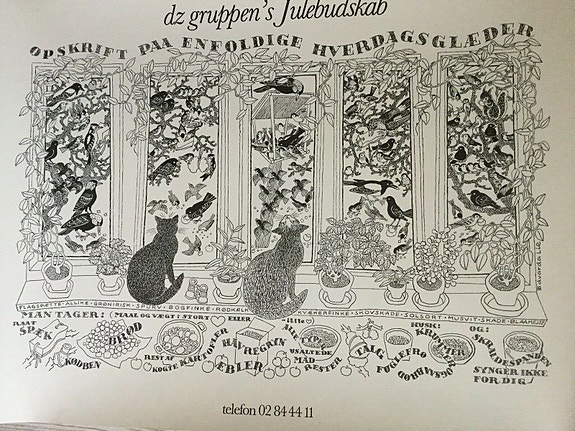 dz gruppen's Julebudskab
OPSKRIFT PAA ENFOLDIGE HVERDAGSGLÆDER
Edvarda Lie
FLAGSPÆTTE - ALLIKE - GRØNIRISK - SPURV - BOGFINKE - RØDKÆLK KVÆKERFINKE - SKOVSKADE - SOLSORT - MUSVIT - SKADE - BLAAMEJSE
MAN TAGER: (MAAL OG VÆGT I STORT ELLER LILLE)
RAAT SPÆK
KØDBEN
BRØD
REST AF KOGTE KARTOFLER
HAVREGRYN
ÆBLER
ALLE TYPER USALTEDE MAD RESTER
TALG
FUGLEFRØ
HUSK: KRUMMER
OG: SKRALDESPANDEN SYNGER IKKE FOR DIG
telefon 02 84 44 11